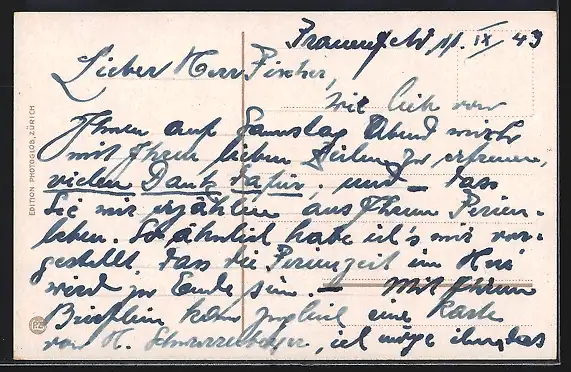 Frauenfeld 11. IX 43
Lieber Herr Fischer,
Wie lieb von
Ihnen auf Samstag Abend mich
mit Ihren lieben Zeilen zu erfreuen,
vielen Dank dafür, und – dass
Sie mir erzählen aus Ihrem Ferien-
leben. So ähnlich habe ich's mir vor-
gestellt, dass die Ferienzeit im
wird zu Ende sein. – Mit Ihrem
Brieflein kam zugleich eine Karte
von H. ich möge ihm das
EDITION PHOTOGLOB, ZÜRICH
PZ